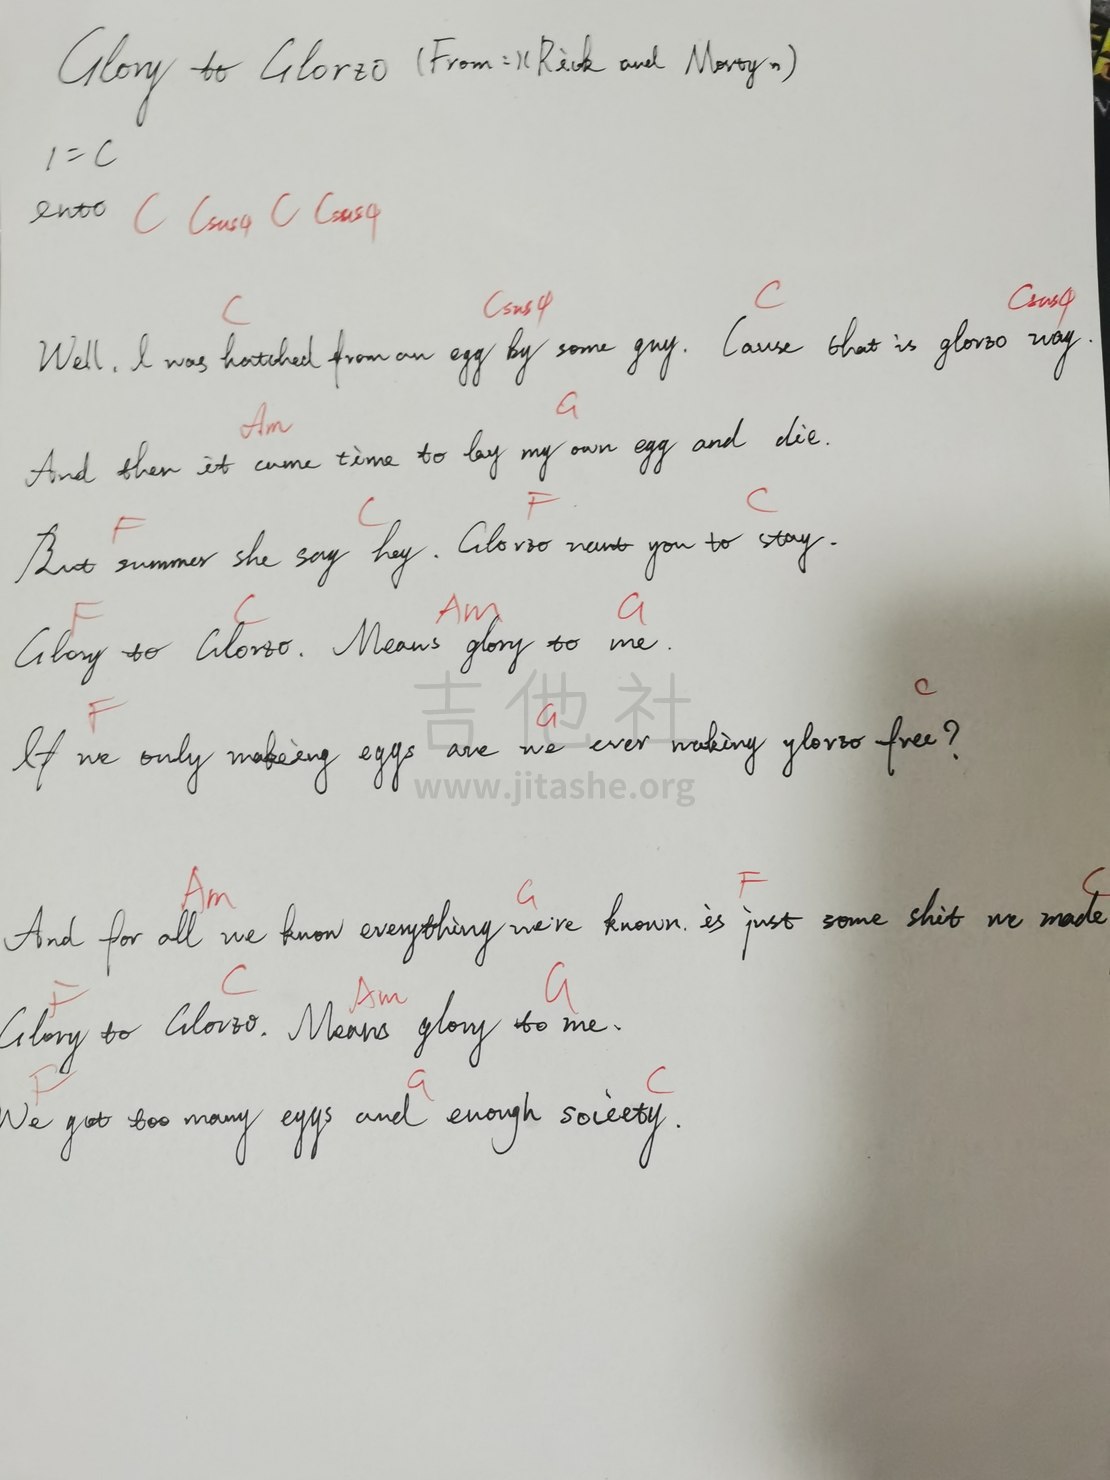 Glory to Glorzo (From:《Rick and Morty》)
1=C
ento C Csus4 C Csus4
C Csus4 C Csus4
Well, I was hatched from an egg by some guy. Cause that is glorzo way.
Am G
And then it came time to lay my own egg and die.
F C F C
But summer she say hey. Glorzo want you to stay.
F C Am G
Glory to Glorzo. Means glory to me.
F G C
If we only makeing eggs are we ever making glorzo free?
吉他社
www.jitashe.org
Am G F C
And for all we know everything we're known. is just some shit we made
F C Am G
Glory to Glorzo. Means glory to me.
F G C
We got too many eggs and enough soieety.